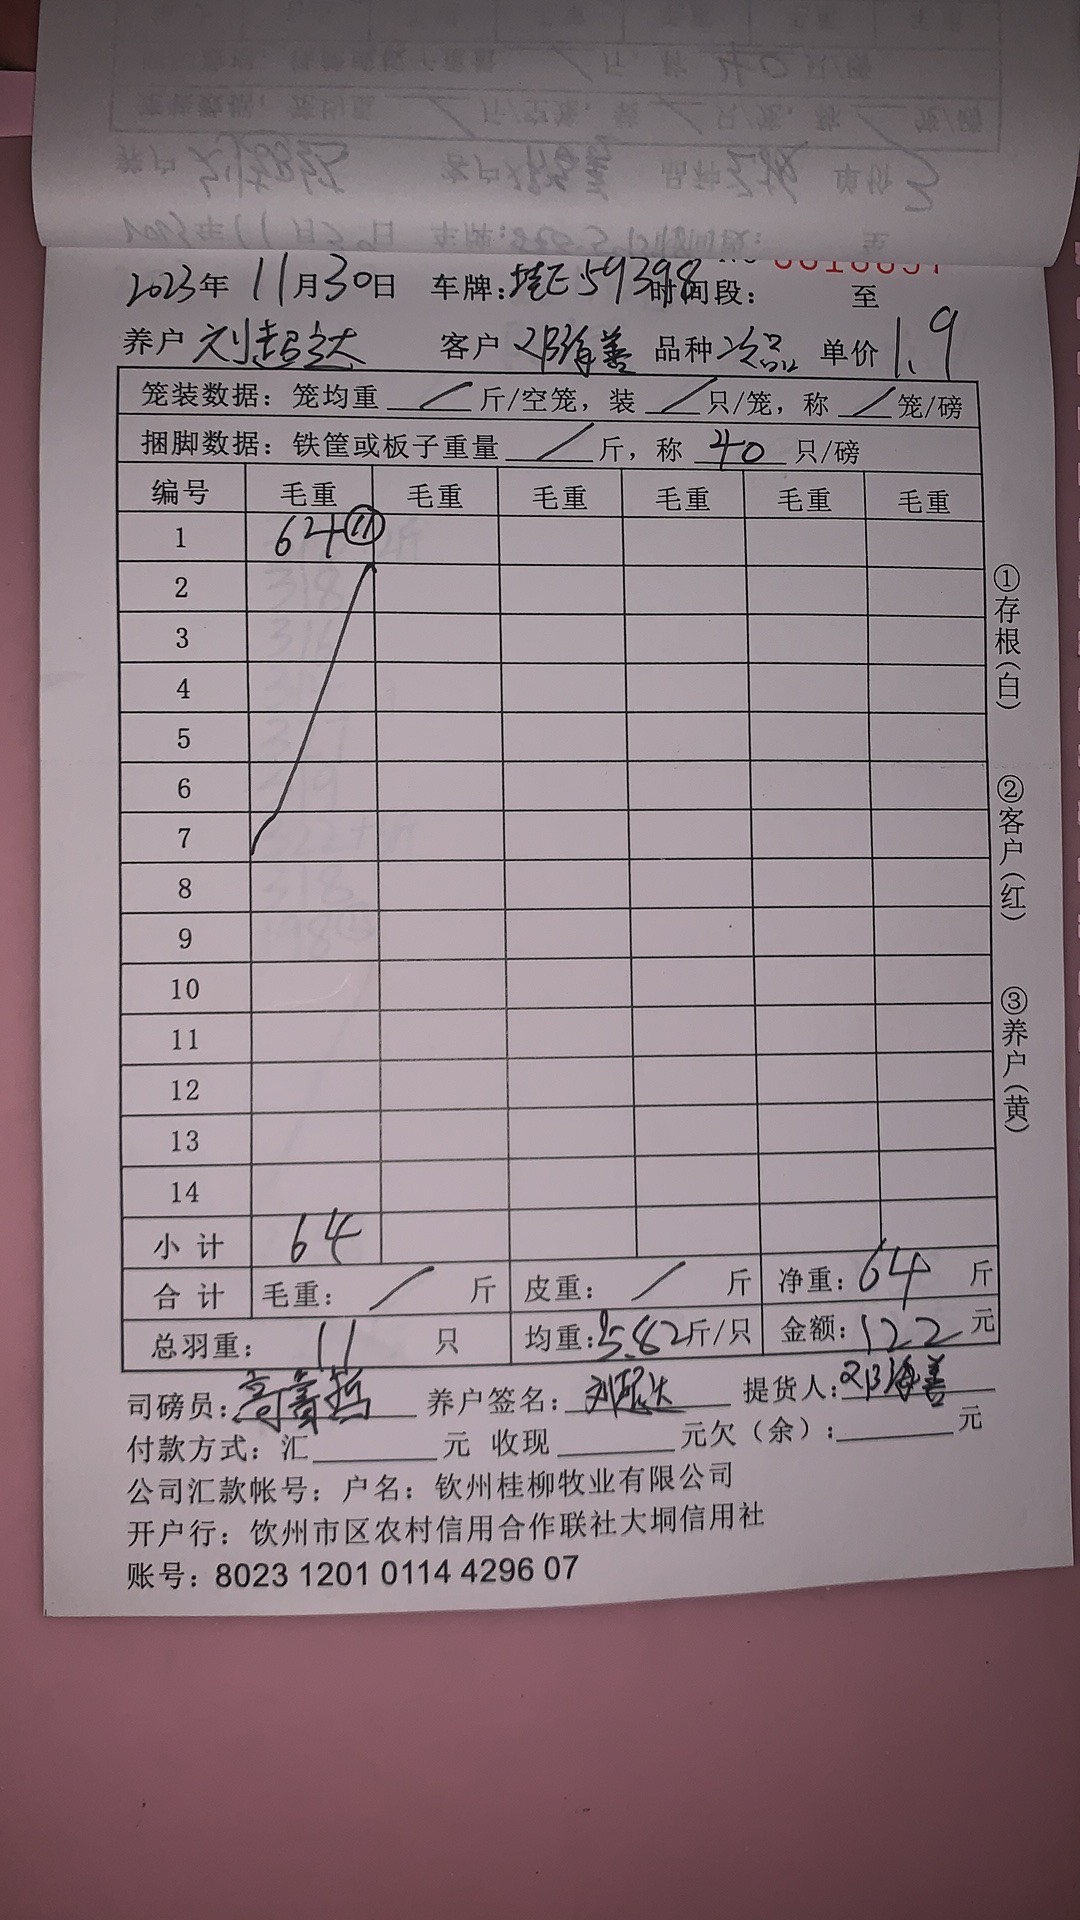 2023年 11月30日 车牌:桂E59398 时间段: 至
养户 刘超达 客户 邓海善 品种 次品 单价 1.9
笼装数据：笼均重 / 斤/空笼，装 / 只/笼，称 / 笼/磅
捆脚数据：铁筐或板子重量 / 斤，称 40 只/磅
编号 毛重 毛重 毛重 毛重 毛重 毛重
1 64 ⑪
2
3
4
5
6
7
8
9
10
11
12
13
14
小计 64
合计 毛重： / 斤 皮重： / 斤 净重：64 斤
总羽重： 11 只 均重：5.82斤/只 金额：122元
司磅员： 养户签名：刘超达 提货人：邓海善
付款方式：汇 元 收现 元欠（余）： 元
公司汇款帐号：户名：钦州桂柳牧业有限公司
开户行：钦州市区农村信用合作联社大垌信用社
账号：8023 1201 0114 4296 07
①存根(白)
②客户(红)
③养户(黄)